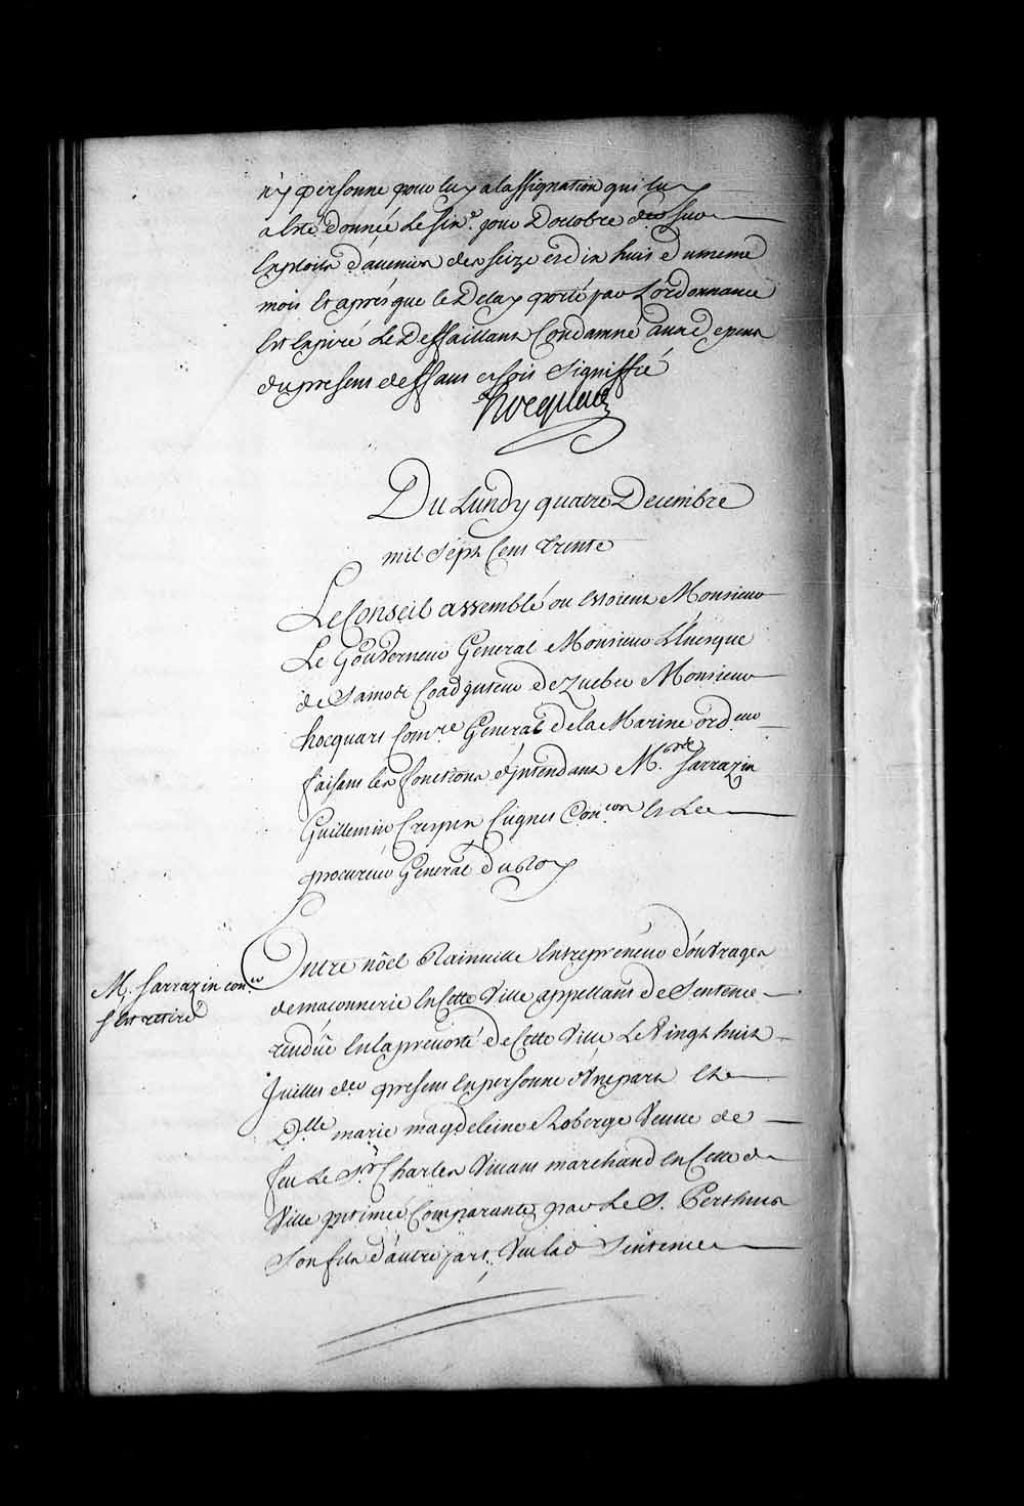 n'y personne pour luy a lassignation qui luy
a esté donnée le sixe. jour Doctobre der sur
Exploits d'avenir des seize et dix huit du meme
mois Et aprés que le Delay porté par Lordonnance
Est Expiré Le Deffaillant Condamné aux Depens
du present deffaut et soit Signiffié
hocquart
Du Lundy quatre Decembre
mil Sept Cens trente
Le Conseil assemblé ou Estoient Monsieur
Le Gouverneur General Monsieur L'Evesque
de Samos Coadjuteur de quebec Monsieur
hocquart Comre General de la Marine ordeur
faisant les fonctions d'jntendant Mrs Sarrazin
Guillemin Crespin Cugnet Coners Et Le
procureur General du Roy
Entre nôel Rainville Entrepreneur d'ouvrages
M. Sarrazin coner
s'est retiré
de maconnerie En Cette Ville appellant de Sentence
rendüe En la prevosté de Cette Ville Le Vingt huit
Juillet der present En personne d'Une part Et
Dlle marie magdeleine Roberge Veuve de
feu Le Sr Charles Perthuis marchand En Cette de
Ville jntimée Comparante par Le S. Perthuis
Son fils d'autre part. Veu lad Sentence